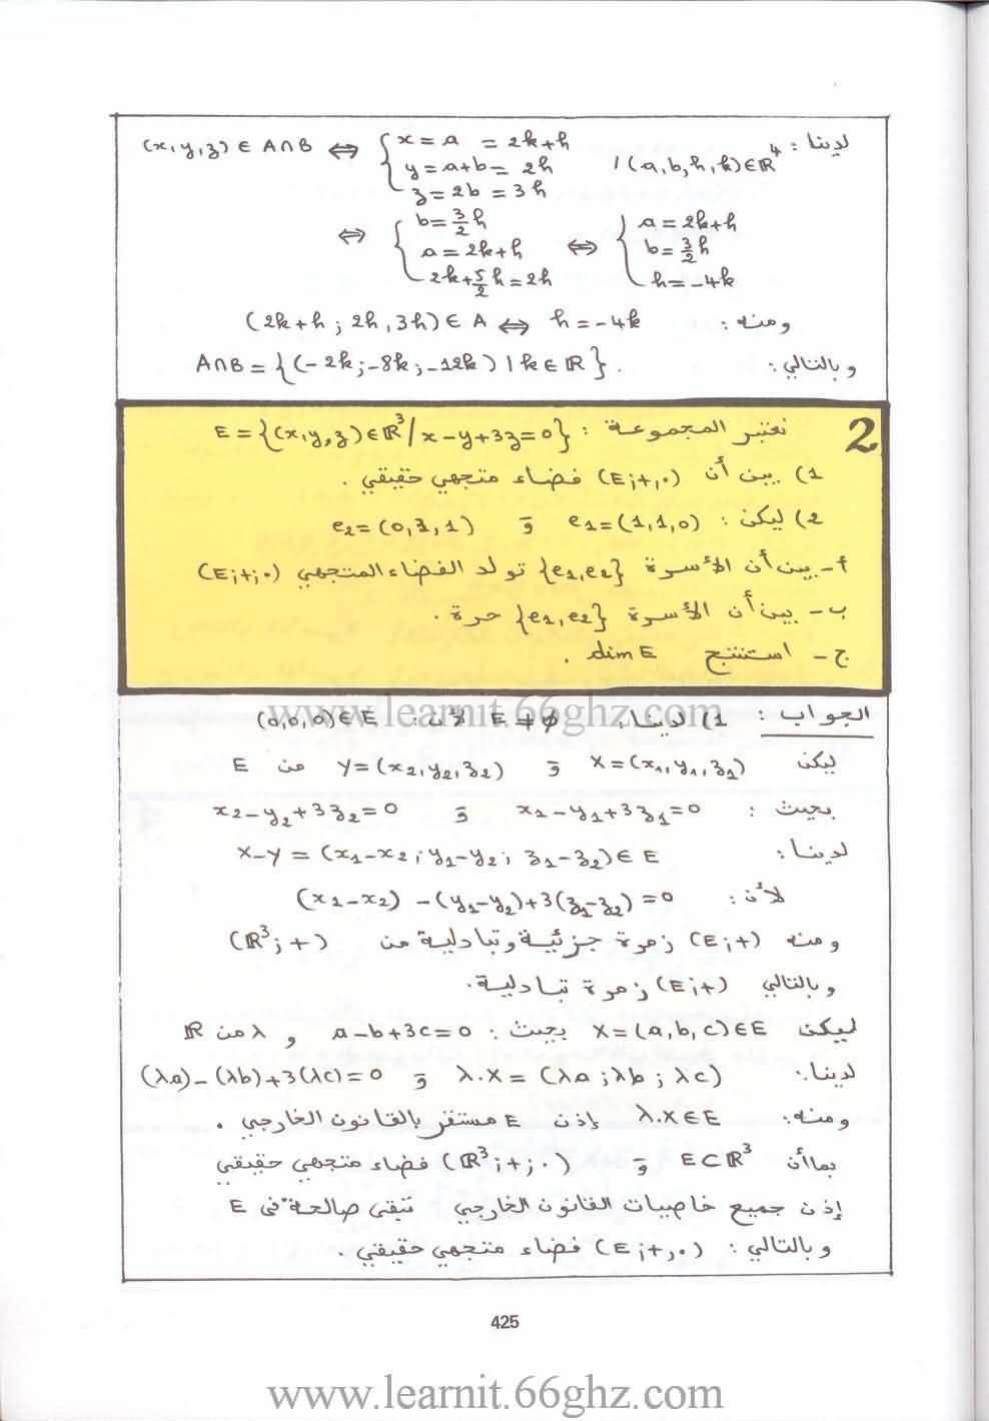 لدينا : (x,y,z) ∈ A∩B ⇔ { x = a = 2k+h ; y = a+b = 2h ; z = 2b = 3h / (a,b,h,k)∈ℝ⁴
⇔ { b = 3/2 h ; a = 2k+h ; 2k+5/2 h = 2h ⇔ { a = 2k+h ; b = 3/2 h ; h = -4k
ومنه : (2k+h ; 2h, 3h) ∈ A ⇔ h = -4k
وبالتالي : A∩B = {(-2k ; -8k ; -12k) | k ∈ ℝ}.
2 نعتبر المجموعة : E = {(x,y,z)∈ℝ³/ x-y+3z=0}
1) بين أن (E;+,.) فضاء متجهي حقيقي .
2) ليكن : e₁=(1,1,0) و e₂=(0,3,1)
أ- بين أن الأسرة {e₁,e₂} تولد الفضاء المتجهي (E;+;.)
ب- بين أن الأسرة {e₁,e₂} حرة .
ج- استنتج dim E .
الجواب : 1) لدينا : E ≠ ∅ لأن : (0,0,0)∈E
www.learnit.66ghz.com
ليكن X=(x₁,y₁,z₁) و Y=(x₂,y₂,z₂) من E
بحيث : x₁-y₁+3z₁=0 و x₂-y₂+3z₂=0
لدينا : X-Y = (x₁-x₂ ; y₁-y₂ ; z₁-z₂) ∈ E
لأن : (x₁-x₂) -(y₁-y₂)+3(z₁-z₂) = 0
ومنه (E;+) زمرة جزئية وتبادلية من (ℝ³;+)
وبالتالي (E;+) زمرة تبادلية.
ليكن X=(a,b,c)∈E بحيث : a-b+3c=0 و λ من ℝ
لدينا : λ.X = (λa ; λb ; λc) و (λa)-(λb)+3(λc)=0
ومنه : λ.X∈E إذن E مستقر بالقانون الخارجي .
بما أن E⊂ℝ³ و (ℝ³;+;.) فضاء متجهي حقيقي
إذن جميع خاصيات القانون الخارجي تبقى صالحة في E
وبالتالي : (E;+,.) فضاء متجهي حقيقي .
425
www.learnit.66ghz.com